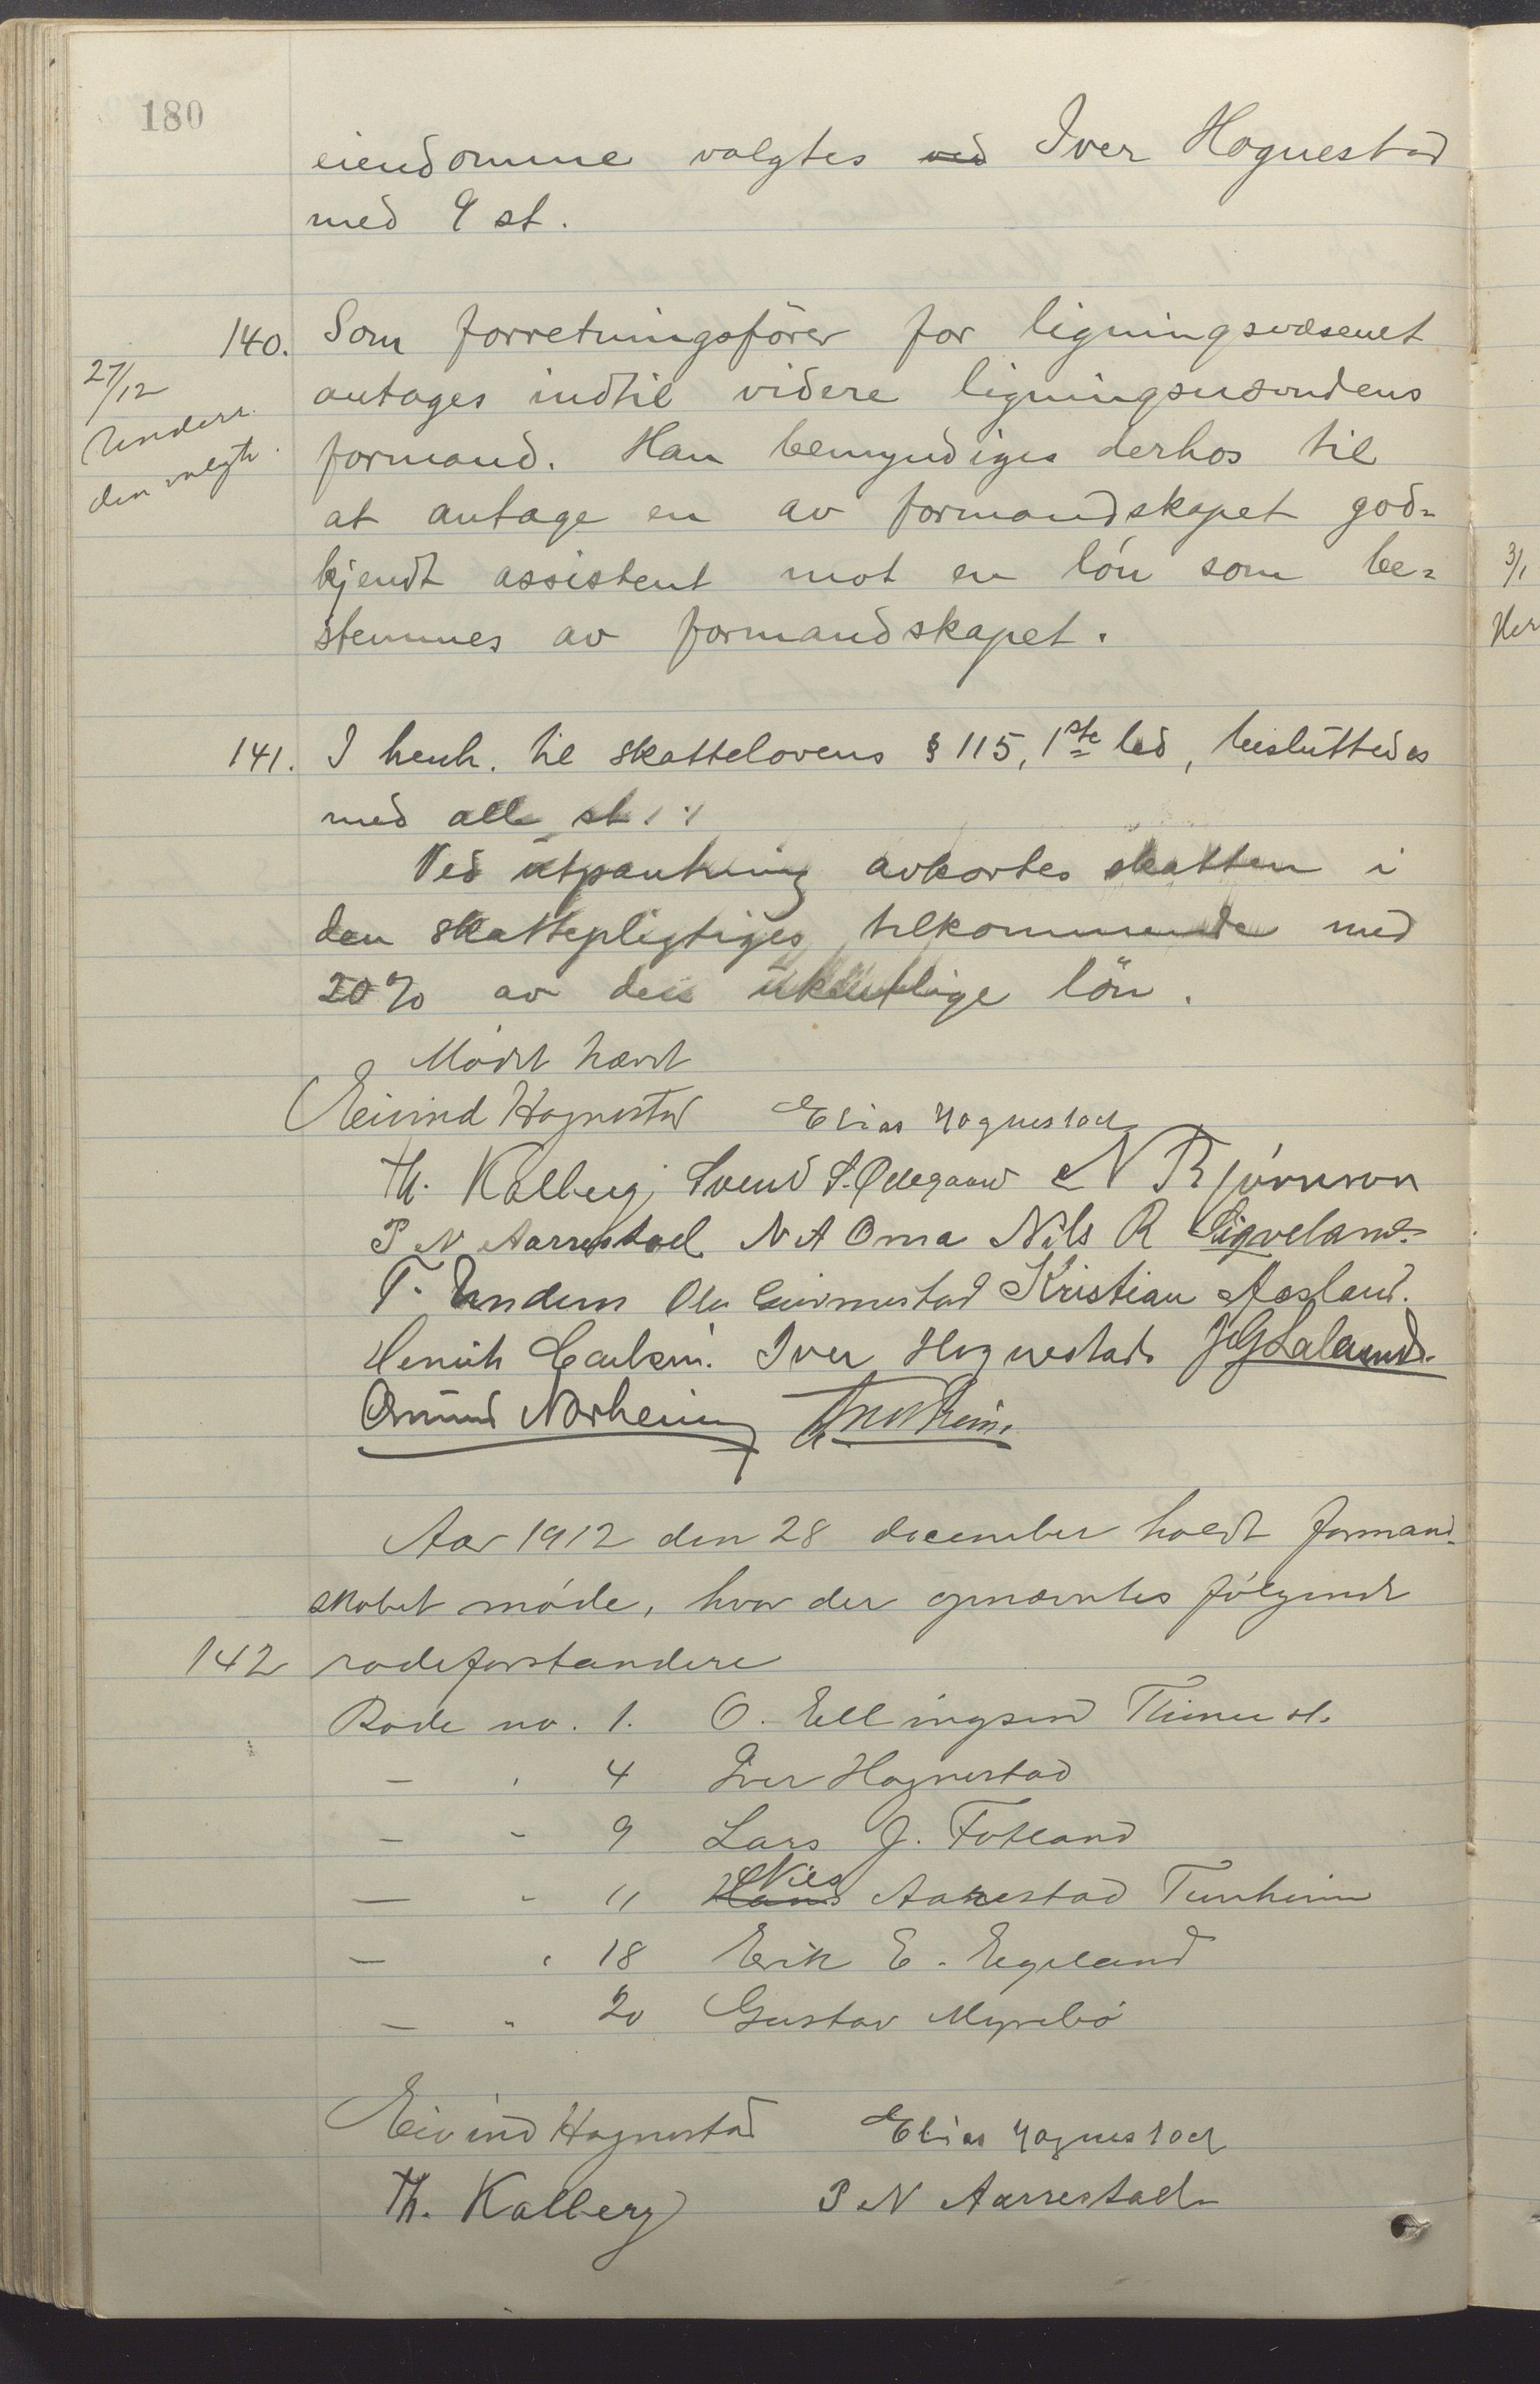 180
eiendomme valgtes ved Iver Hognestad
med 9 st.
140. Som forretningsfører for ligningsvæsenet
27/12
Underr.
den valgte.
antages indtil videre ligningsnævndens
formand. Han bemyndiges derhos til
at antage en av formandskapet god=
kjendt assistent mot en løn som be=
stemmes av formandskapet.
141. I henh. til skattelovens § 115, 1ste led, besluttedes
med alle st.:
Ved utpantning avkortes skatten i
den skattepligtiges tilkommende med
20% av den ukentlige løn.
Mødet hævet
Eivind Hognestad Elias Hognestad
Th. Kalberg Svend S. Ødegaard N Bjørnson
P N Aarrestad N A Oma Nils R Sigveland.
T. Undem Ole Geirmestad Kristian Aasland.
Henrik Carlsen. Iver Hognestad J G Lalaand.
Osmund Norheim
Aar 1912 den 28 december holdt formand-
skabet møde, hvor der opnævntes følgende
142 rodeforstandere
Rode no. 1. O. Ellingsen Thime st.
— " 4 Iver Hognestad
— " 9 Lars J. Fotland
— " 11 Hans Nils Aarrestad Tunheim
— " 18 Erik E. Egeland
— " 20 Gustav Myrebø
Eivind Hognestad Elias Hognestad
Th. Kalberg P N Aarrestad
3/1